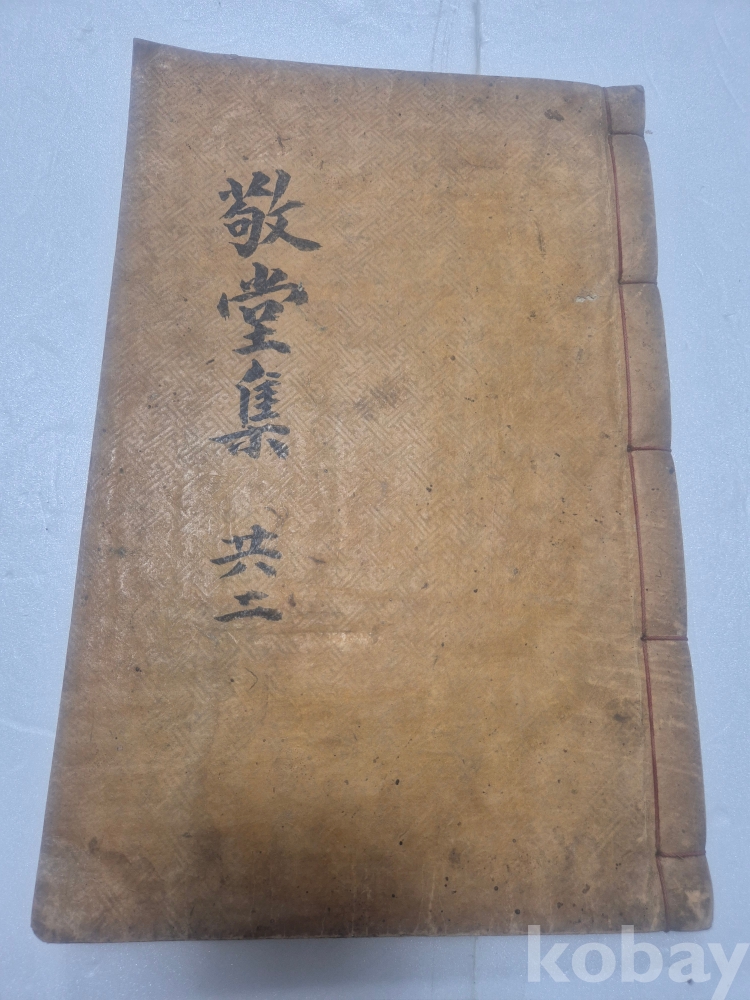 敬堂集 共二
kobay